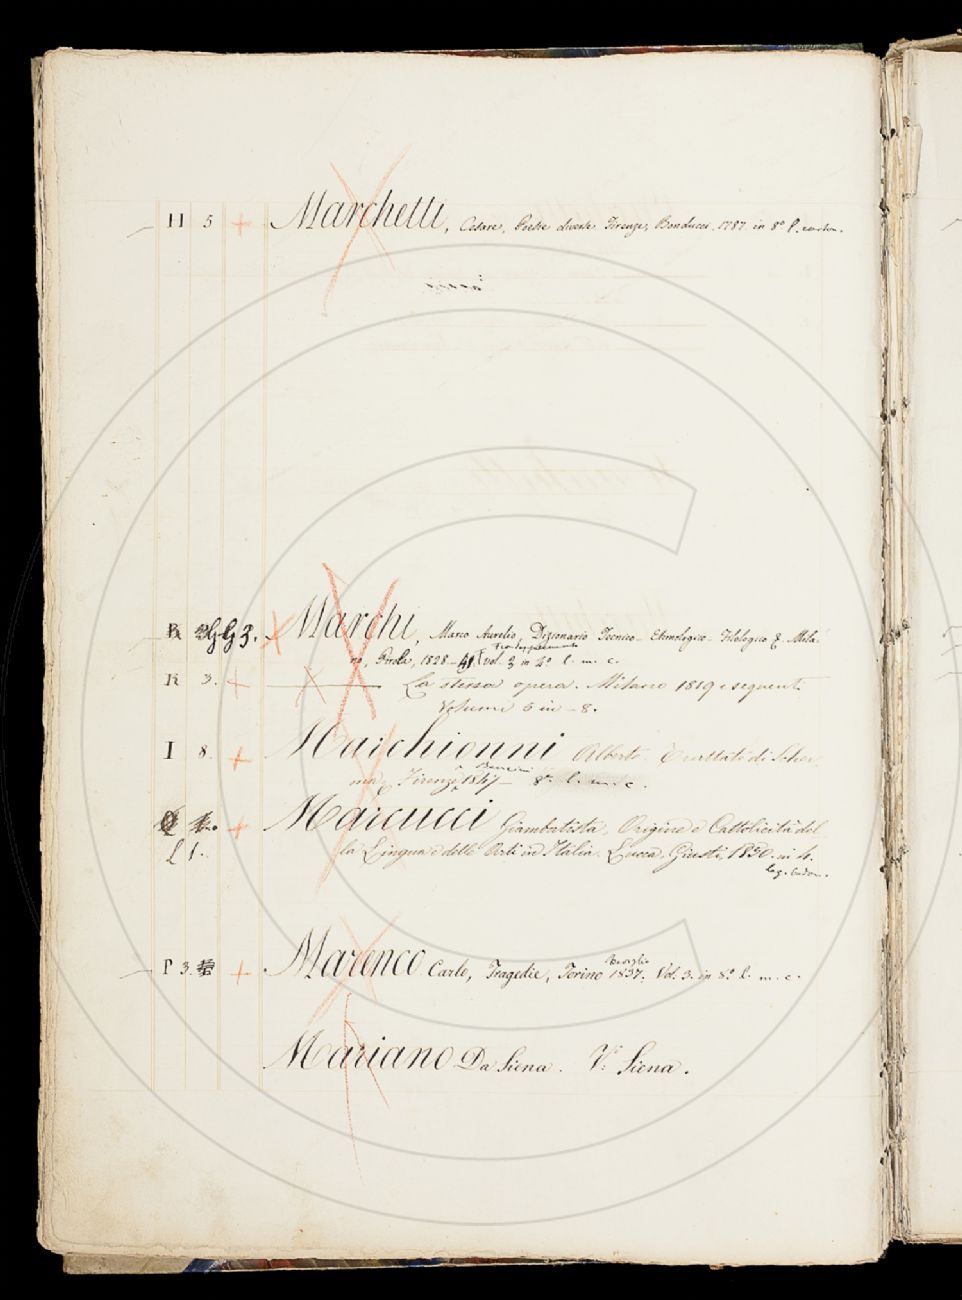 H 5 + Marchetti, Cesare, Poesie diverse Firenze, Bonducci, 1787 in 8º p. carton.
R G 3. Marchi, Marco Aurelio, Dizionario Tecnico-Etimologico-Filologico &. Mila-
no, Pirola, 1828-41. vol. 3 in 4º l. m. c.
R 3. + La stessa opera. Milano 1819 e seguent.
Volumi 5 in-8.
I 8. + Marchionni Alberto. Trattato di Scher
ma, Firenze, Bencini 1847- 8º l. m. c.
+ Marcucci Giambatista, Origine e Cattolicità del
L 1. la Lingua e delle Arti in Italia. Lucca, Giusti, 1830. in 4.
leg. bodon.
P 3. + Marenco Carlo, Tragedie, Torino 1837, Vol. 3. in 8º l. m. c.
Mariano Da Siena. V. Siena.